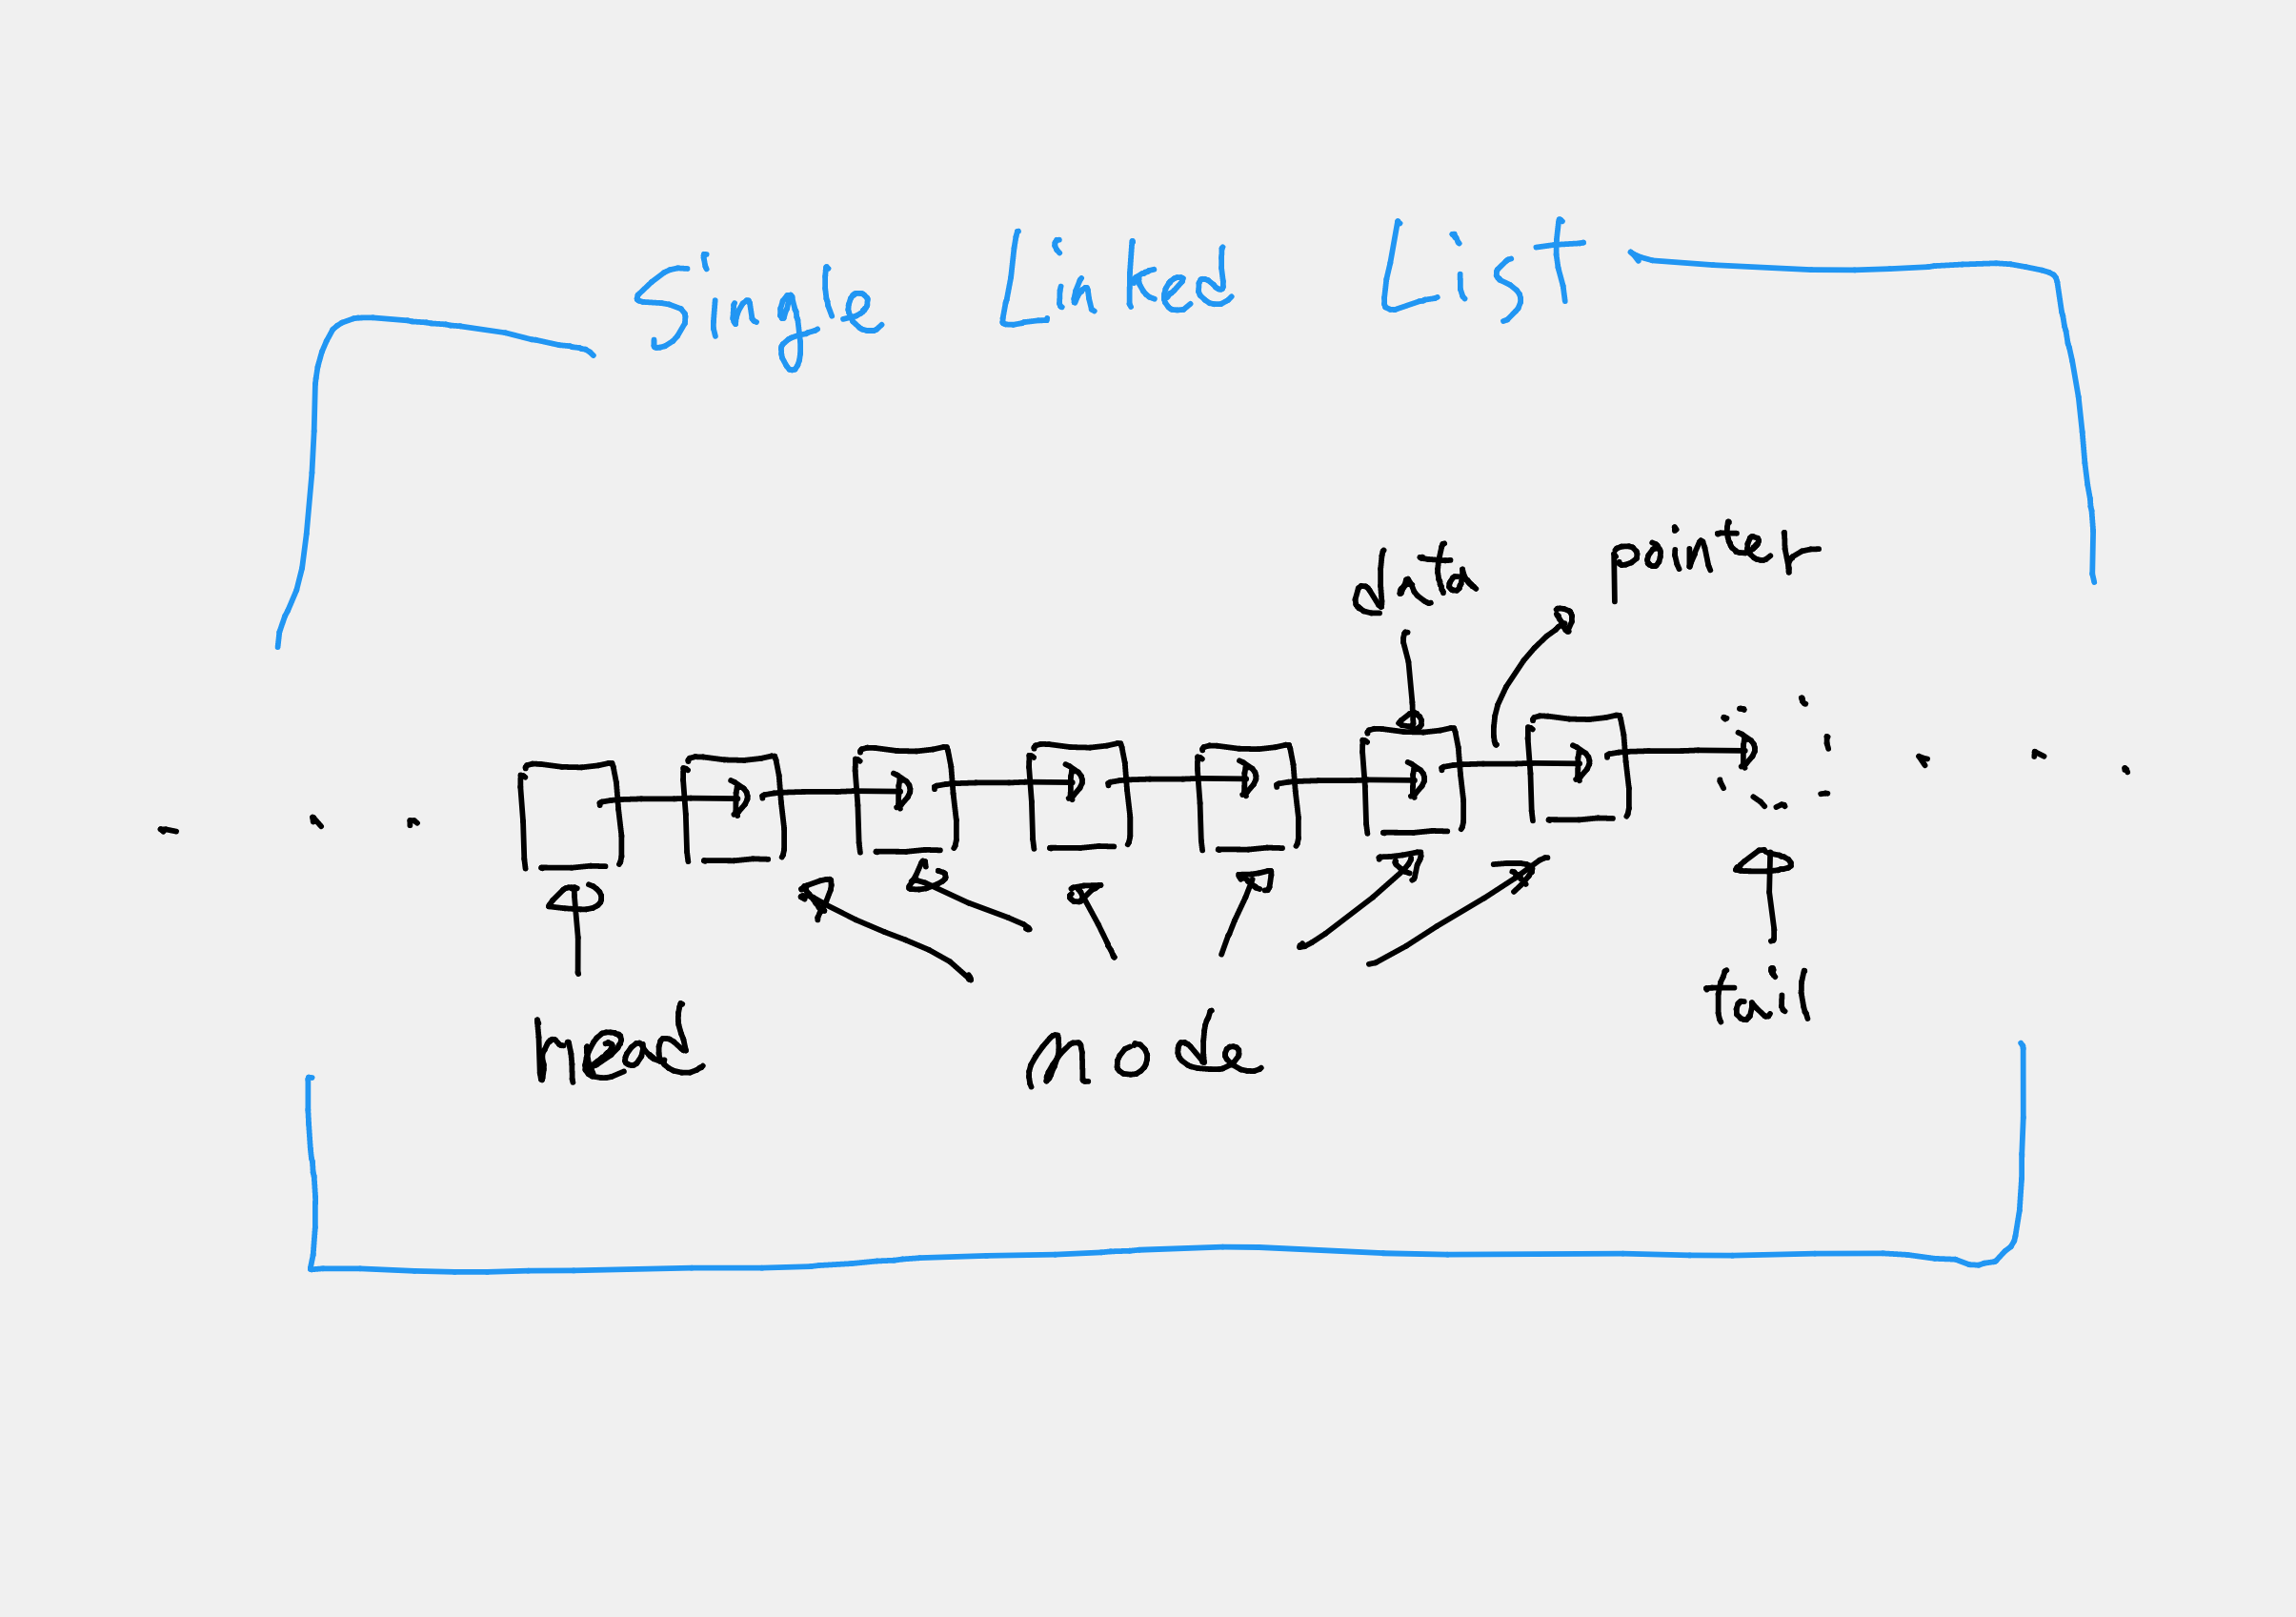 Single Linked List
data
pointer
head
node
tail